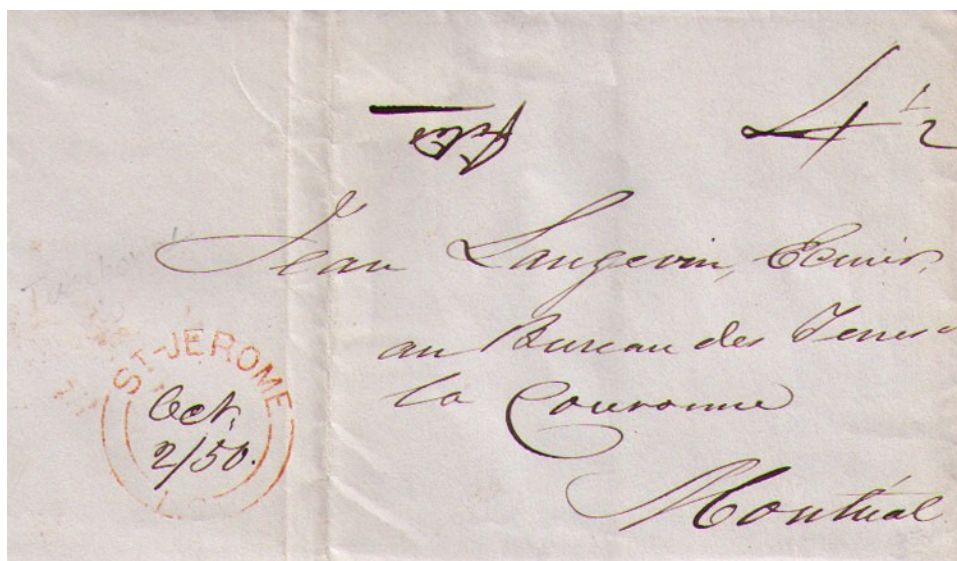 4 1/2
Jean Langevin, Ecuier,
au Bureau des Terres
la Couronne
Montréal
ST-JEROME
Oct.
2/50.
L.C